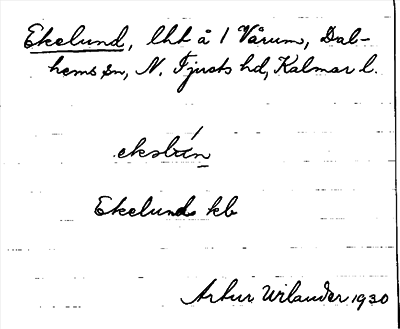 Ekelund, lht å 1 Vårum, Dal-
hems sn, N. Tjusts hd, Kalmar l.
Ekelunds kb
Artur Wilander 1930